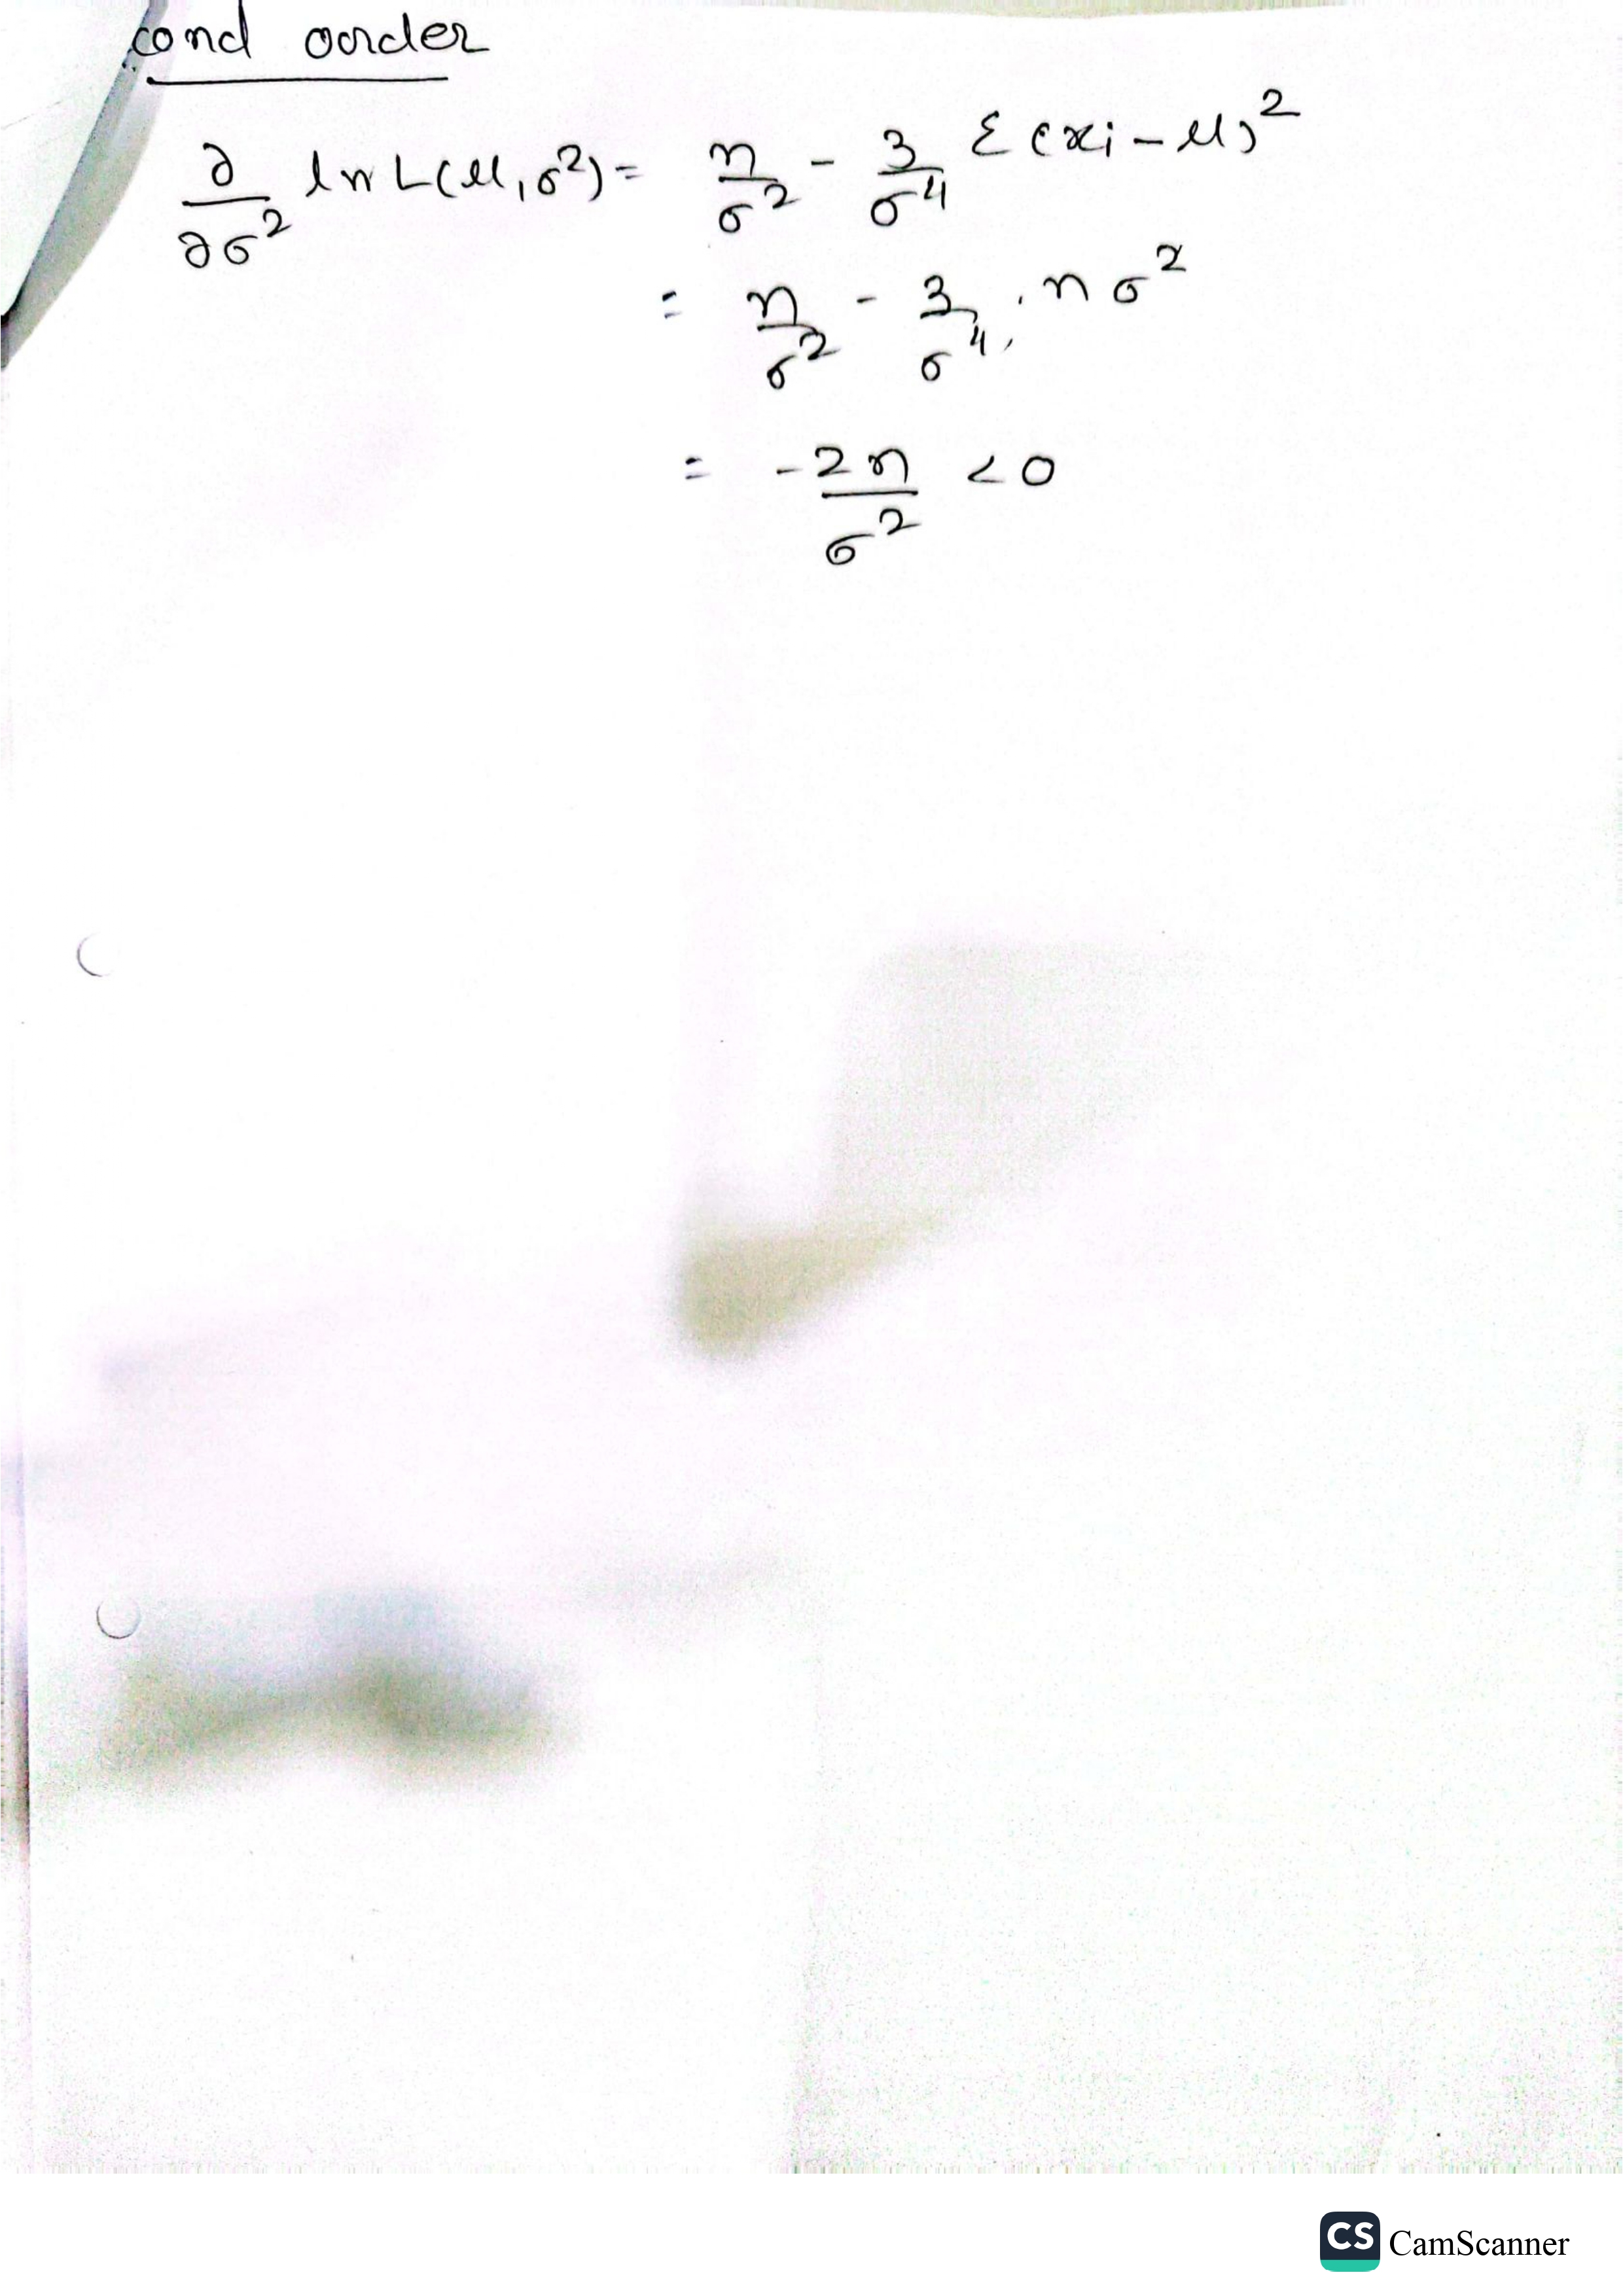 cond order
∂/∂σ² ln L(μ, σ²) = n/σ² - 3/σ⁴ Σ(xi - μ)²
= n/σ² - 3/σ⁴ . nσ²
= -2n/σ² < 0
CS CamScanner